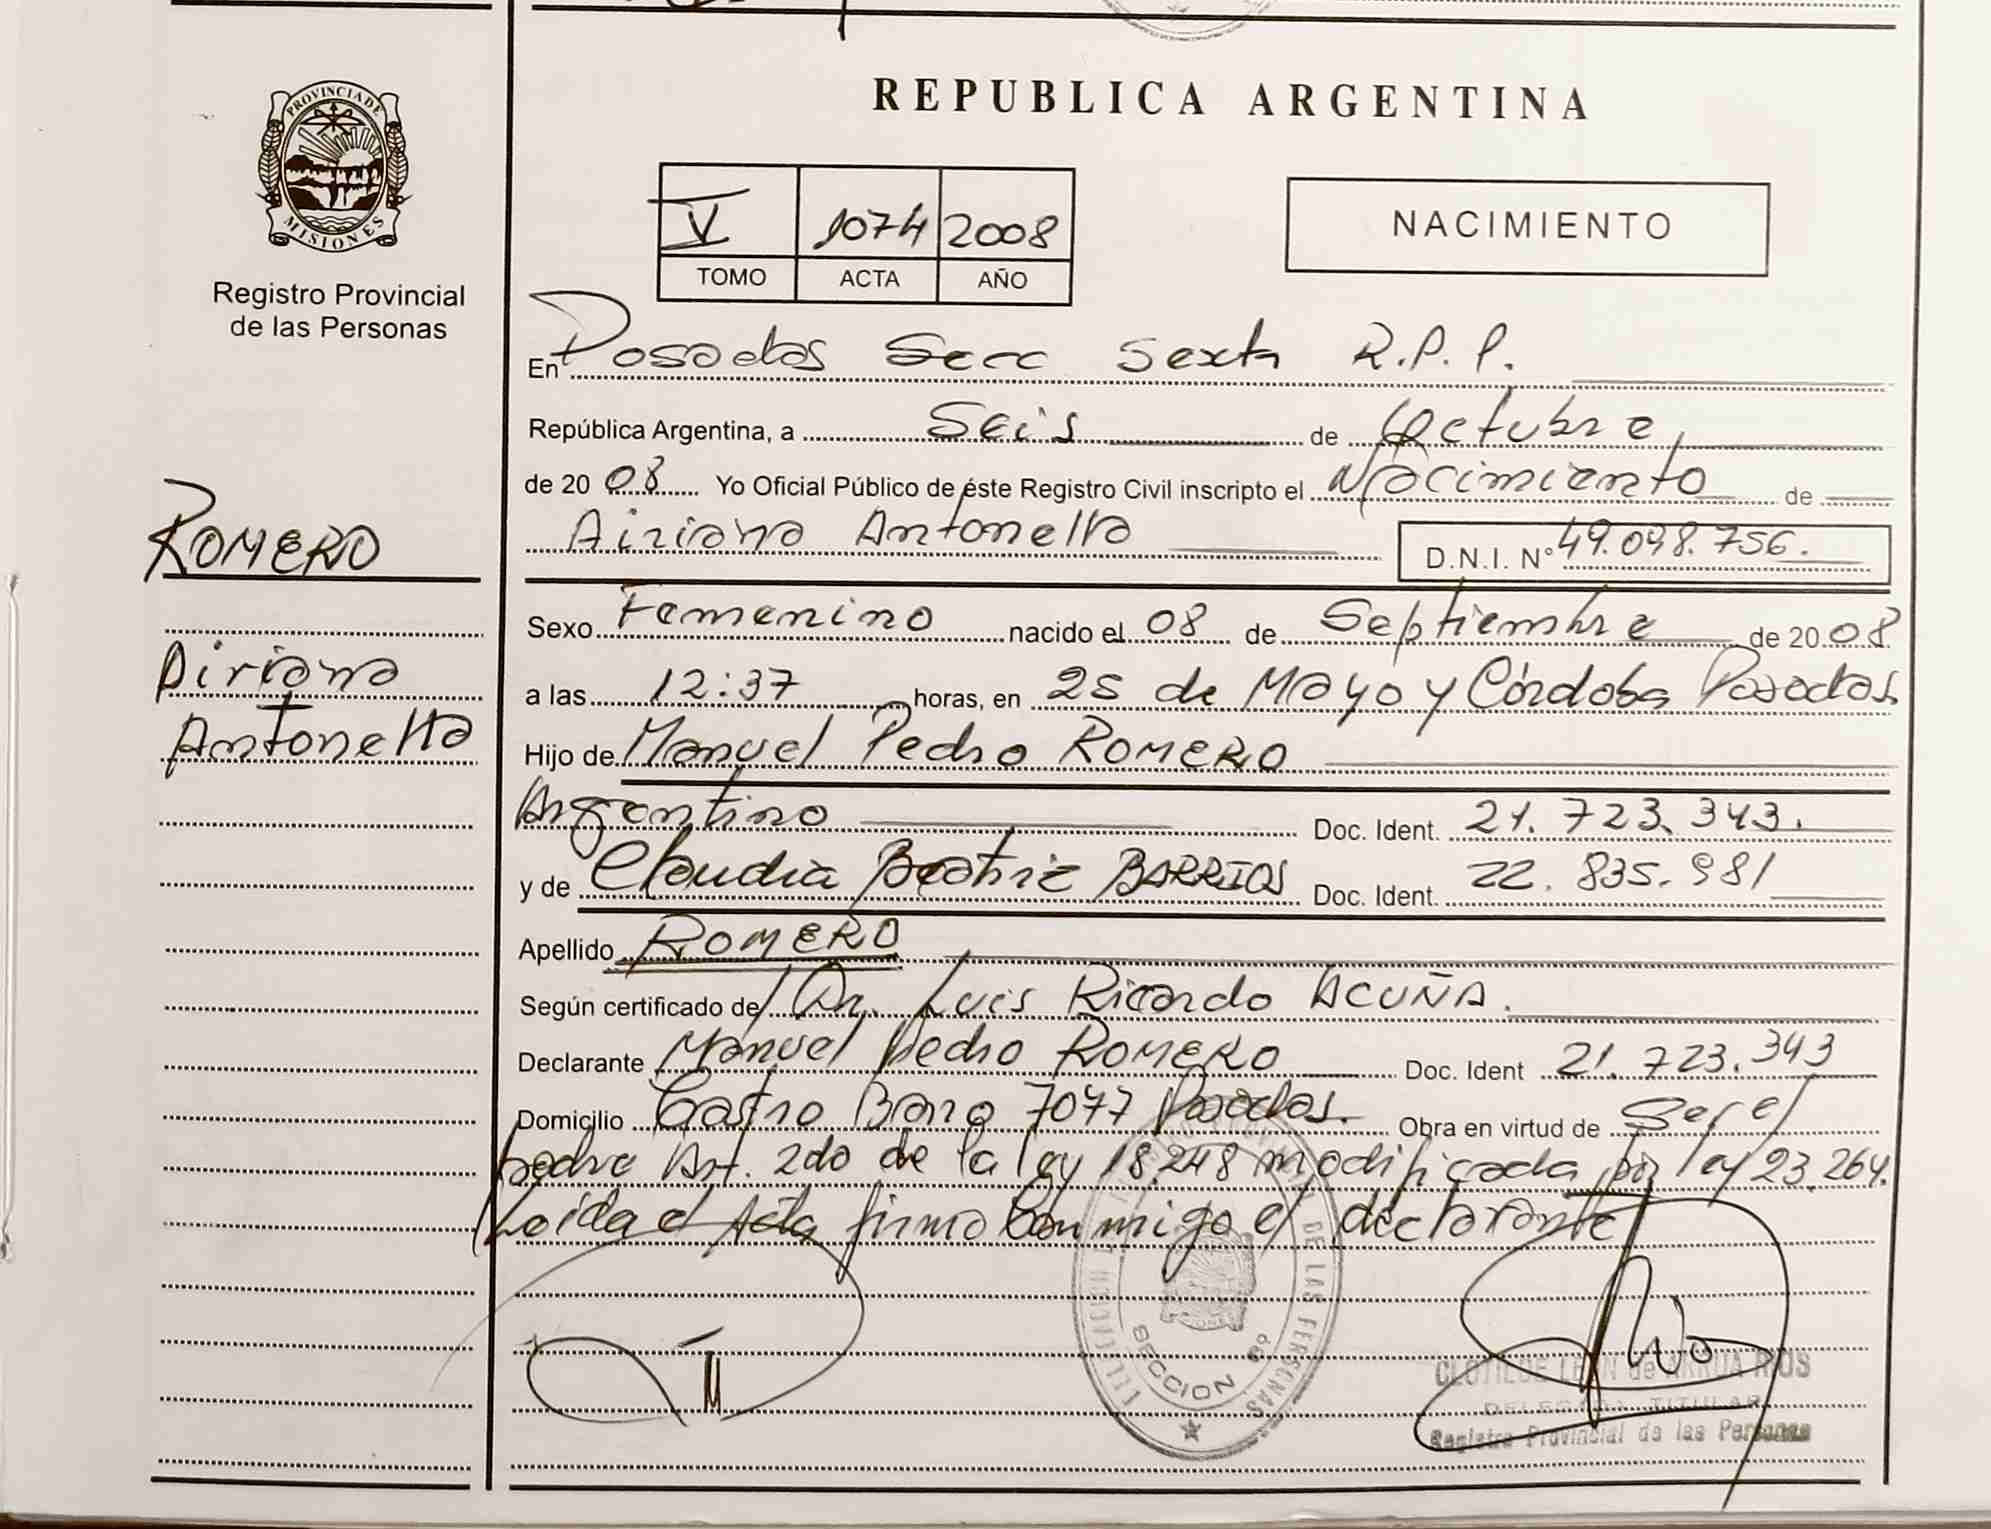 PROVINCIA DE
MISIONES
Registro Provincial
de las Personas
ROMERO
Airiana
Antonella
REPUBLICA ARGENTINA
V 1074 2008
TOMO ACTA AÑO
NACIMIENTO
En Posadas Secc Sexta R.P.P.
República Argentina, a Seis de Octubre
de 2008 Yo Oficial Público de éste Registro Civil inscripto el Nacimiento de
Airiana Antonella D.N.I. Nº 49.048.756.
Sexo Femenino nacido el 08 de Septiembre de 2008
a las 12:37 horas, en 25 de Mayo y Córdoba Posadas
Hijo de Manuel Pedro ROMERO
Argentino Doc. Ident. 21.723.343.
y de Claudia Beatriz BARRIOS Doc. Ident. 22.835.981
Apellido ROMERO
Según certificado de Dr. Luis Ricardo ACUÑA.
Declarante Manuel Pedro ROMERO Doc. Ident 21.723.343
Domicilio Castro Barro 7077 Posadas. Obra en virtud de Ser el
Padre Art. 2do de la ley 18.248 modificada por ley 23.264.
Leída el Acta firma Conmigo el declarante
DE LAS PERSONAS
SECCION 6º
CLOTILDE LEON de ARRUA RIOS
DELEGADA TITULAR
Registro Provincial de las Personas